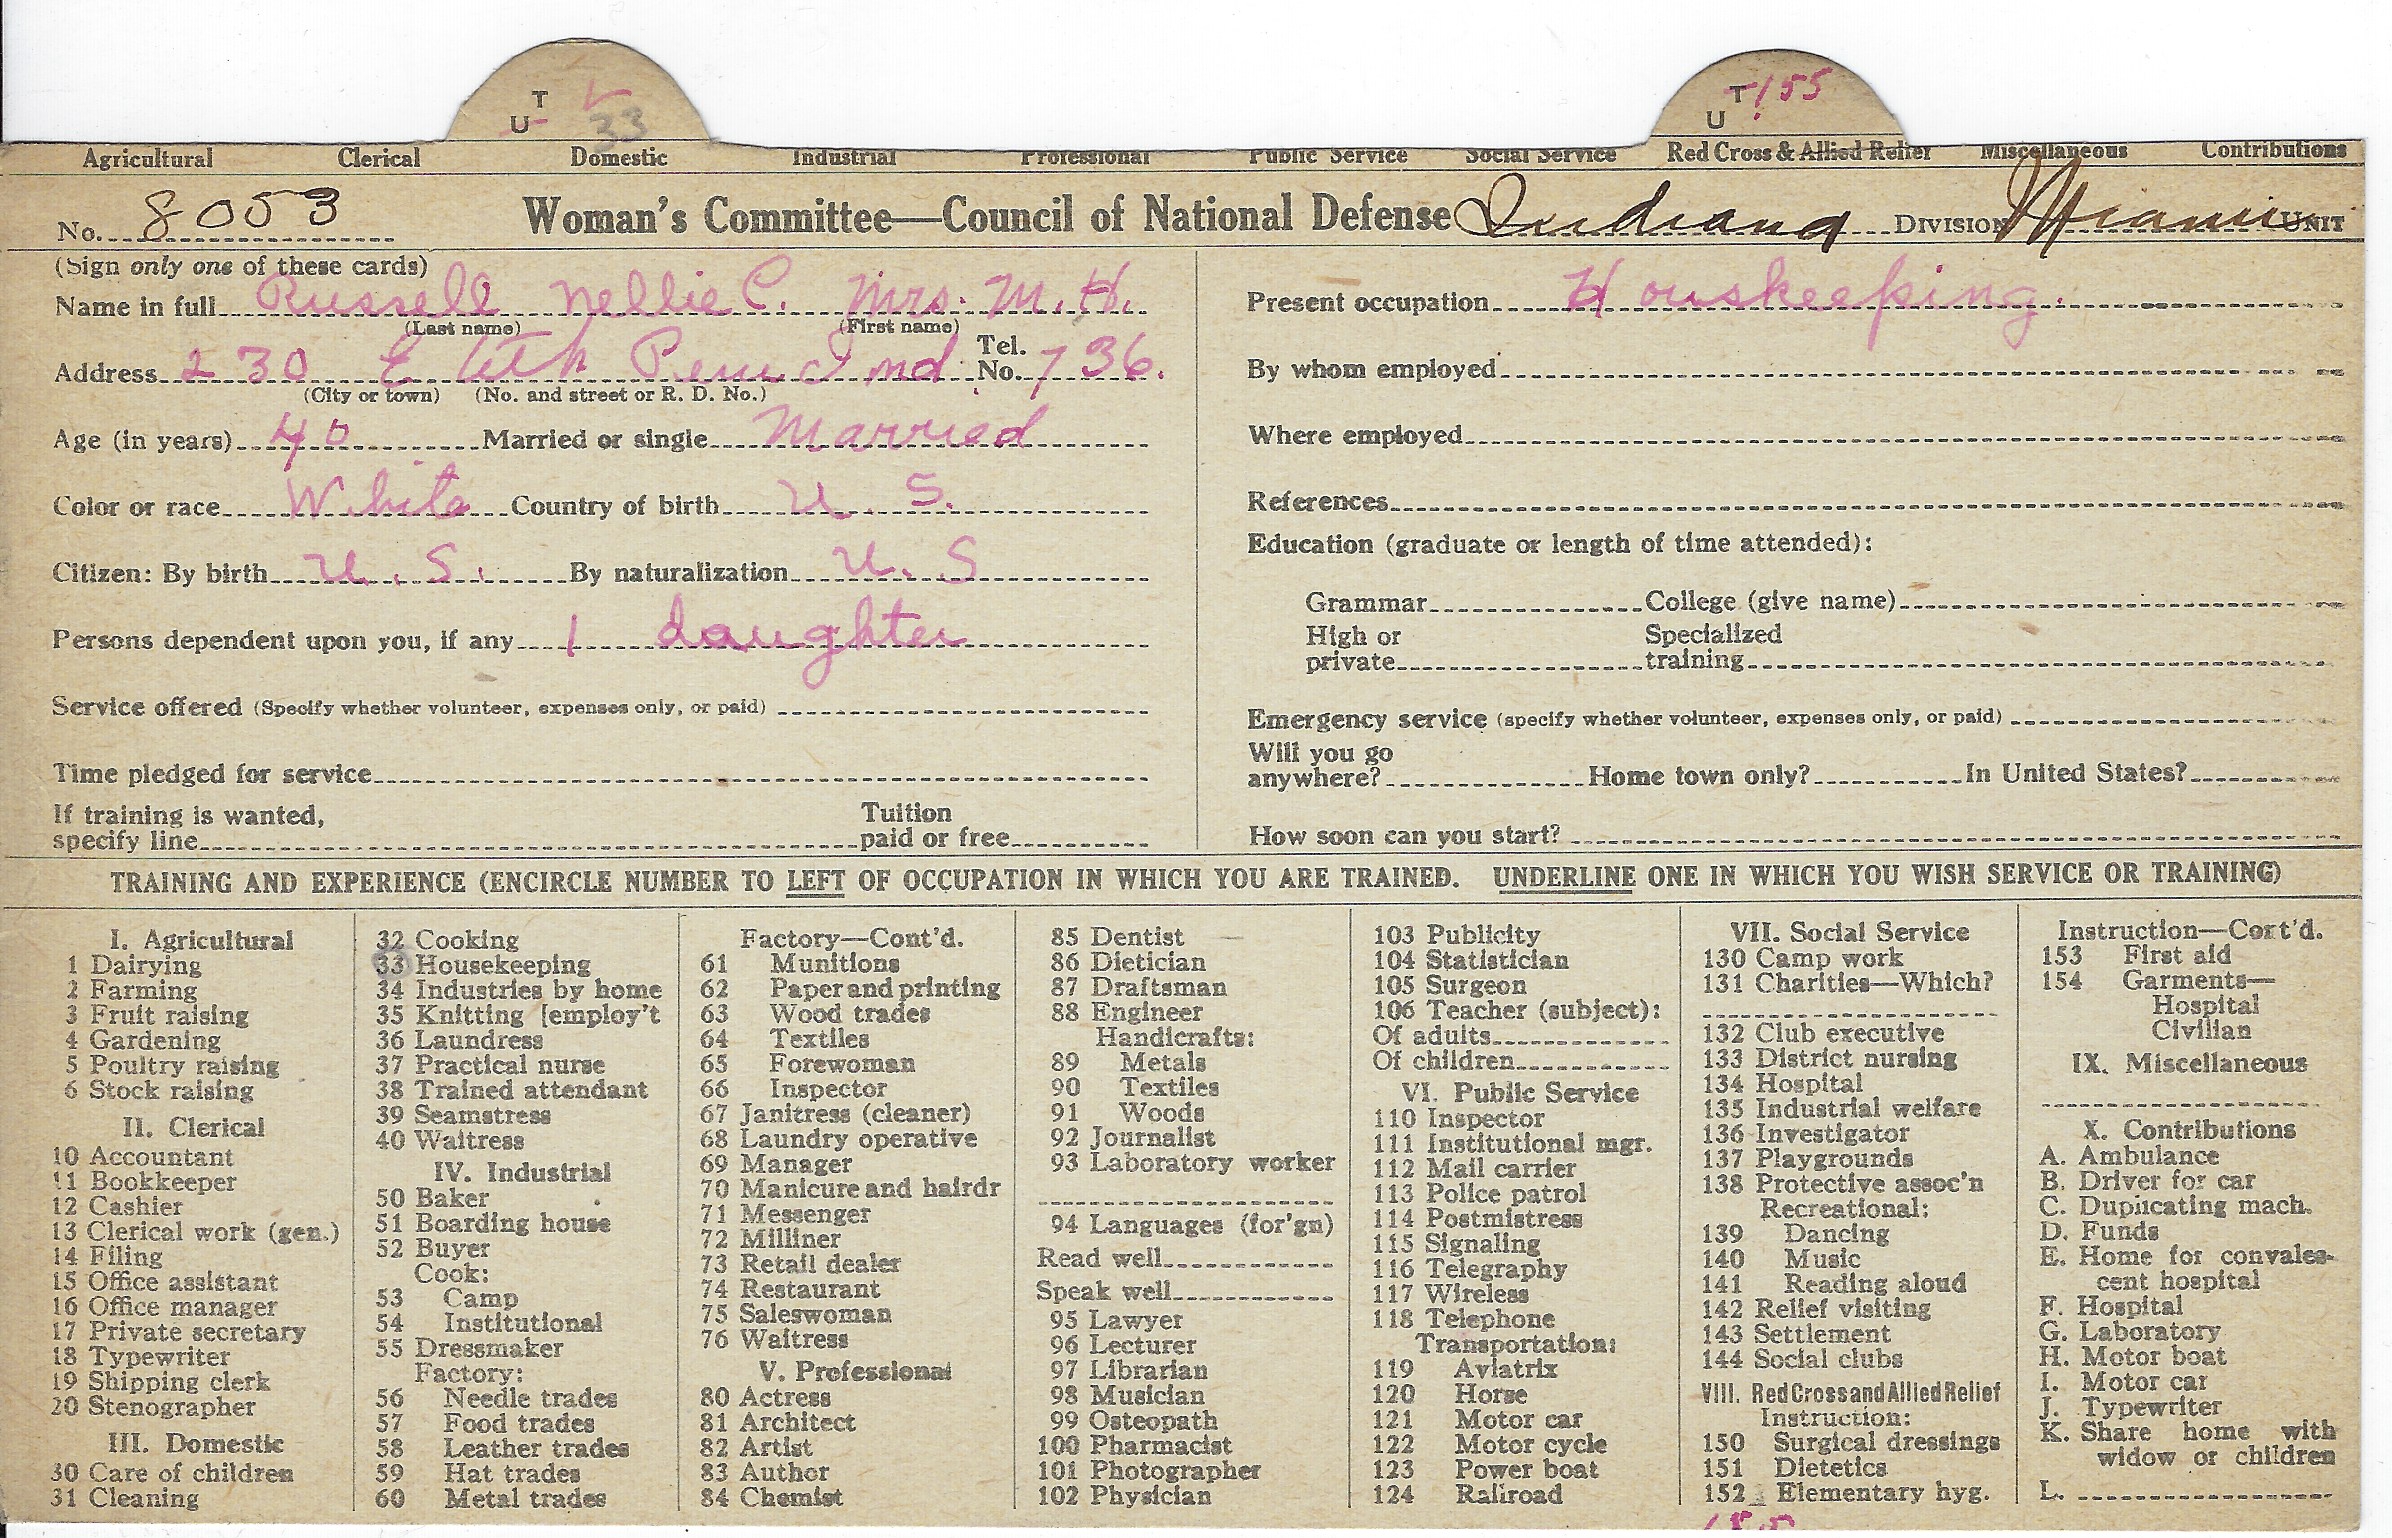 T
U 33
T 155
U
Agricultural Clerical Domestic Industrial Professional Public Service Social Service Red Cross & Allied Relief Miscellaneous Contributions
No. 8053 Woman's Committee—Council of National Defense Indiana DIVISION Miami UNIT
(Sign only one of these cards)
Name in full Russell Nellie C. Mrs. M. H.
(Last name) (First name)
Address 230 E 6th Peru Ind Tel. No. 736.
(City or town) (No. and street or R. D. No.)
Age (in years) 40 Married or single Married
Color or race White Country of birth U. S.
Citizen: By birth U. S. By naturalization U. S
Persons dependent upon you, if any 1 daughter
Service offered (Specify whether volunteer, expenses only, or paid)
Time pledged for service
If training is wanted,
specify line Tuition paid or free
Present occupation Houskeeping.
By whom employed
Where employed
References
Education (graduate or length of time attended):
Grammar College (give name)
High or private Specialized training
Emergency service (specify whether volunteer, expenses only, or paid)
Will you go
anywhere? Home town only? In United States?
How soon can you start?
TRAINING AND EXPERIENCE (ENCIRCLE NUMBER TO LEFT OF OCCUPATION IN WHICH YOU ARE TRAINED. UNDERLINE ONE IN WHICH YOU WISH SERVICE OR TRAINING)
I. Agricultural
1 Dairying
2 Farming
3 Fruit raising
4 Gardening
5 Poultry raising
6 Stock raising
II. Clerical
10 Accountant
11 Bookkeeper
12 Cashier
13 Clerical work (gen.)
14 Filing
15 Office assistant
16 Office manager
17 Private secretary
18 Typewriter
19 Shipping clerk
20 Stenographer
III. Domestic
30 Care of children
31 Cleaning
32 Cooking
33 Housekeeping
34 Industries by home
35 Knitting [employ't
36 Laundress
37 Practical nurse
38 Trained attendant
39 Seamstress
40 Waitress
IV. Industrial
50 Baker
51 Boarding house
52 Buyer
Cook:
53 Camp
54 Institutional
55 Dressmaker
Factory:
56 Needle trades
57 Food trades
58 Leather trades
59 Hat trades
60 Metal trades
Factory—Cont'd.
61 Munitions
62 Paper and printing
63 Wood trades
64 Textiles
65 Forewoman
66 Inspector
67 Janitress (cleaner)
68 Laundry operative
69 Manager
70 Manicure and hairdr
71 Messenger
72 Milliner
73 Retail dealer
74 Restaurant
75 Saleswoman
76 Waitress
V. Professional
80 Actress
81 Architect
82 Artist
83 Author
84 Chemist
85 Dentist
86 Dietician
87 Draftsman
88 Engineer
Handicrafts:
89 Metals
90 Textiles
91 Woods
92 Journalist
93 Laboratory worker
94 Languages (for'gn)
Read well
Speak well
95 Lawyer
96 Lecturer
97 Librarian
98 Musician
99 Osteopath
100 Pharmacist
101 Photographer
102 Physician
103 Publicity
104 Statistician
105 Surgeon
106 Teacher (subject):
Of adults
Of children
VI. Public Service
110 Inspector
111 Institutional mgr.
112 Mail carrier
113 Police patrol
114 Postmistress
115 Signaling
116 Telegraphy
117 Wireless
118 Telephone
Transportation:
119 Aviatrix
120 Horse
121 Motor car
122 Motor cycle
123 Power boat
124 Railroad
VII. Social Service
130 Camp work
131 Charities—Which?
132 Club executive
133 District nursing
134 Hospital
135 Industrial welfare
136 Investigator
137 Playgrounds
138 Protective assoc'n
Recreational:
139 Dancing
140 Music
141 Reading aloud
142 Relief visiting
143 Settlement
144 Social clubs
VIII. Red Cross and Allied Relief
Instruction:
150 Surgical dressings
151 Dietetics
152 Elementary hyg.
155
Instruction—Cont'd.
153 First aid
154 Garments—
Hospital
Civilian
IX. Miscellaneous
X. Contributions
A. Ambulance
B. Driver for car
C. Duplicating mach.
D. Funds
E. Home for convales-
cent hospital
F. Hospital
G. Laboratory
H. Motor boat
I. Motor car
J. Typewriter
K. Share home with
widow or children
L.